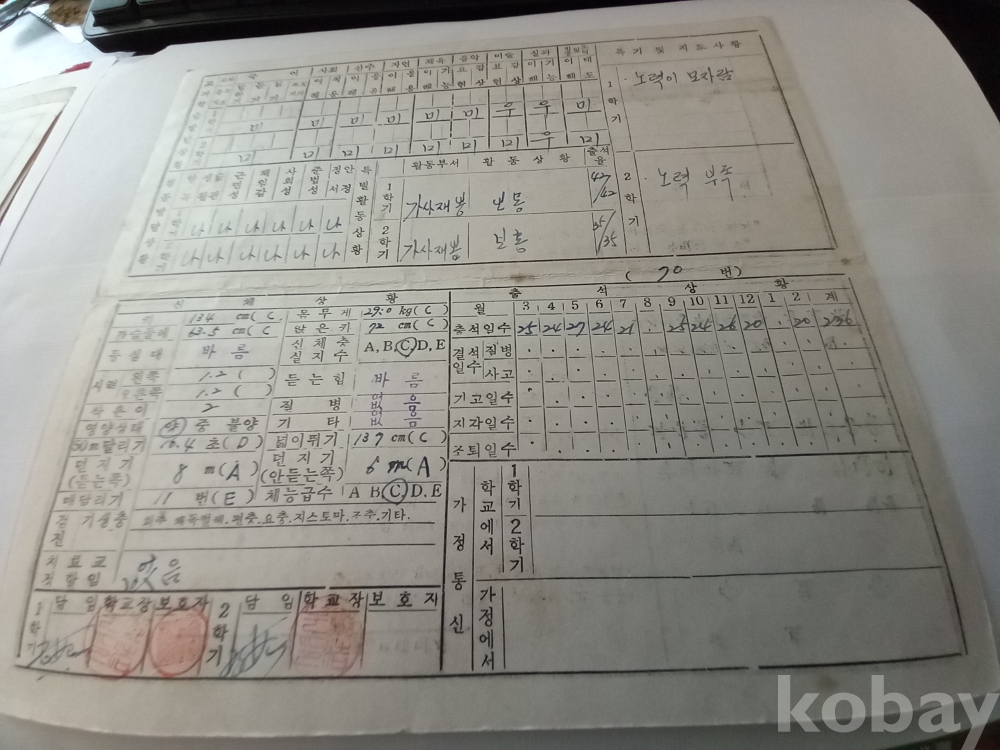 국 어 사회 산수 자연 체육 음악 미술 실과
특 기 및 지 도 사 항
1 학 기
노력이 모자람
미 미 미 미 미 미 우 우 미
우
활동부서 활 동 상 황 출석율
준법성 정서 안정 특별활동상황
1학기 가사재봉 보통 42/42
2학기 가사재봉 보통 35/35
나 나 나 나 나 나
나 나 나 나 나 나
2 학 기
노력 부족
( 70 번)
신 체 상 황
키 134 cm(C 몸무게 29.0 kg(C
가슴둘레 63.5 cm(C 앉은키 72 cm(C
등심대 바 름 신체충실지수 A, B, C, D, E
시력 왼쪽 1.2 ( ) 듣는힘 바 름
오른쪽 1.2 ( )
2 질 병 없 음
영양상태 양 중 불양 기 타 없 음
50m달리기 초(D) 넓이뛰기 139 cm(C
던지기(듣는쪽) 8 m(A) 던지기(안듣는쪽) 6 m(A)
매달리기 11 번(E) 체능급수 A B, C, D, E
기생충 회충 편충.요충.지스토마.구충.기타.
없음
1학기 담 임 학교장 보호자 2학기 담 임 학교장 보호자
출 석 상 황
월 3 4 5 6 7 8 9 10 11 12 1 2 계
출석일수 25 24 27 24 21 . 25 24 26 20 . 20 236
결석일수 질병
사고
기고일수
지각일수
조퇴일수
가 정 통 신
학교에서 1학기 2학기
가정에서
kobay